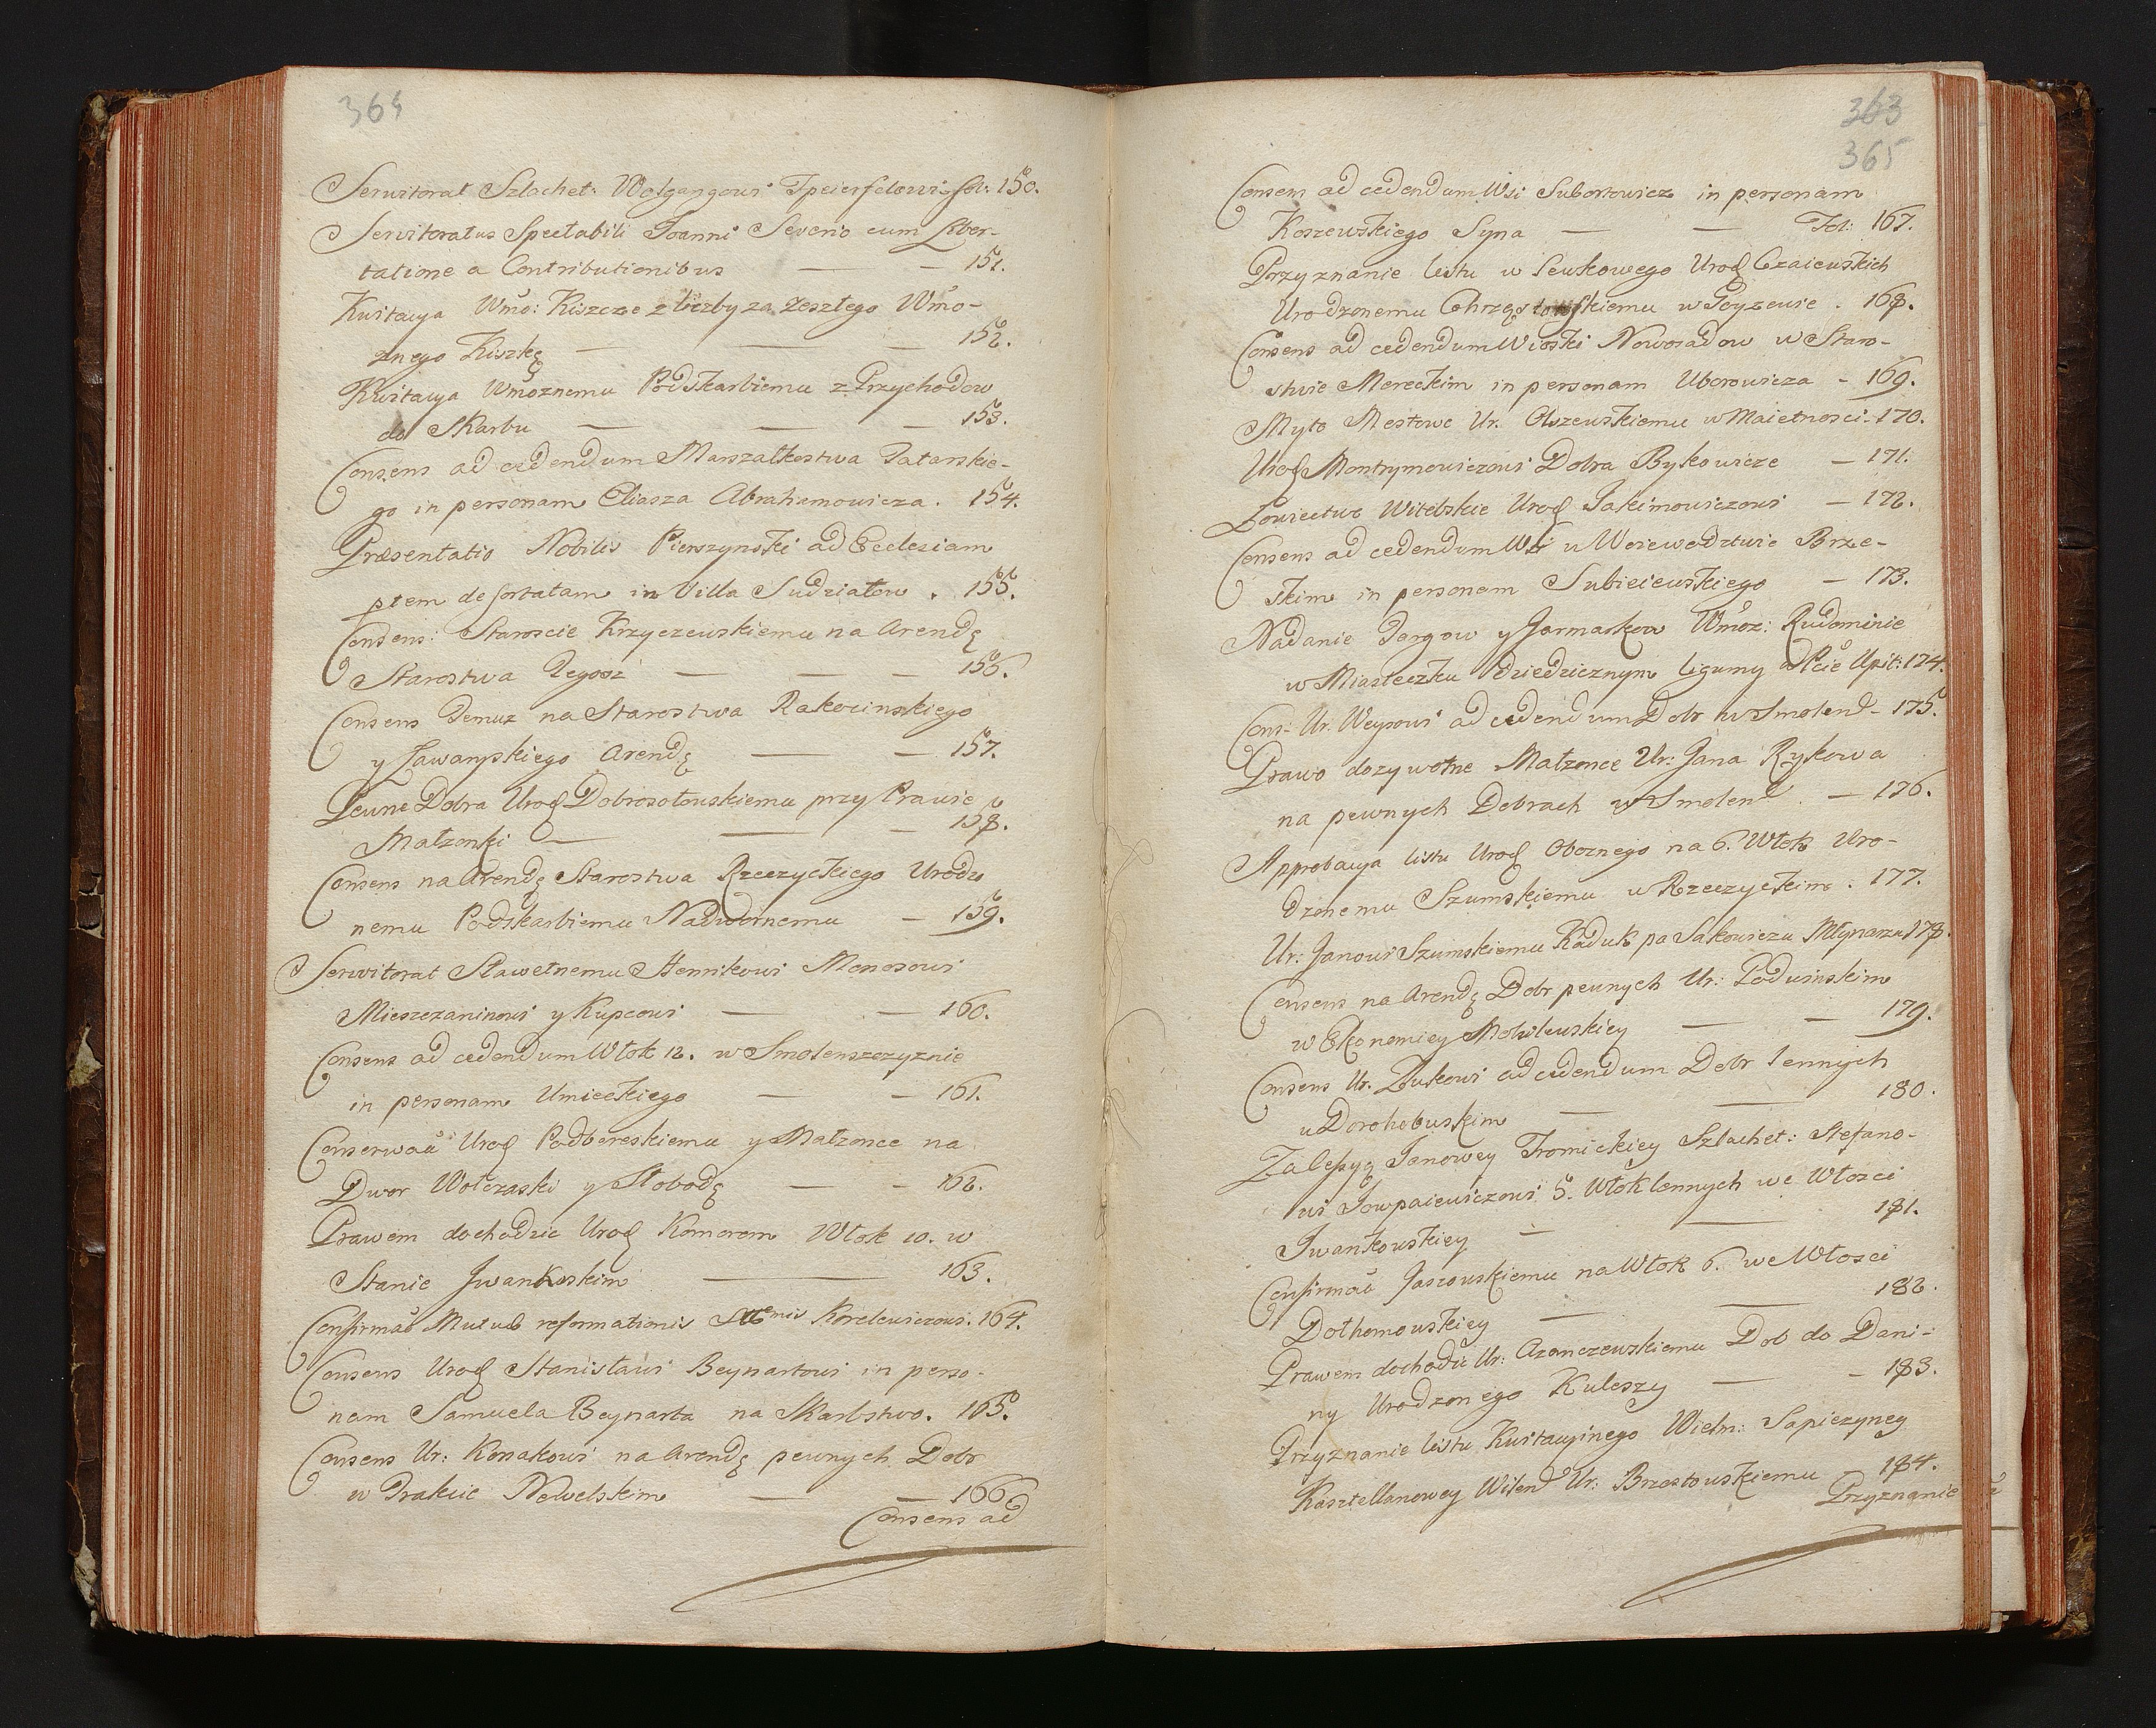 364
Serwitorat Szlachet: Wolgangowi Speierfelowi fol: 150.
Servitoratus Spectabili Joanni Severio cum Liber-
tatione a Contributionibus — — 151.
Kwitacya Wmo: Kiszcze z liczby za zeszłego Wmo-
żnego Kiszkę — — — 152.
Kwitacya Wmożnemu Podskarbiemu z Przychodow
do Skarbu — — — 153.
Consens ad cedendum Marszałkostwa Tatarskie-
go in personam Eliasza Abrahamowicza. 154.
Præsentatio Nobilis Pierszynski ad Ecclesiam
ptem desortatam in Villa Sudziałow. 155.
Consens: Staroscie Krzyczewskiemu na Arendę
Starostwa — — — 156.
Consens Temuz na Starostwa Rakocinskiego
y Ławaryskiego Arendę — — 157.
Pewne Dobra Urod Dobrosołowskiemu przy Prawie
Małzonki — — — 158.
Consens na Arendę Starostwa Rzeczyckiego Urodzo
nemu Podskarbiemu Nadwornemu — 159.
Serwitorat Sławetnemu Hennikowi Monosowi
Mieszczaninowi y Kupcowi — — 160.
Consens ad cedendum Włok 12. w Smolenszczyznie
in personam Umieckiego — — 161.
Conserwaō Urod Podbereskiemu y Małzonce na
Dwor Wołczaski y Słobodę — — 162.
Prawem dochodzic Urod Komorom Włok 10. w
Stanie Jwankoskim — 163.
Confirmaō Mutuæ reformationis Korelewiczowi. 164.
Consens Urod Stanisławi Beynartowi in perso-
nam Samuela Beynarta na Skarbstwo. 165.
Consens Ur: Konakowi na Arendę pewnych Dobr
w Trakcie Newelskim — — 166.
Consens ad
363
365
Consens ad cedendum Wsi Subortowicz in personam
Koszewskiego Syna — — Fol: 167.
Przyznanie listu w Lewkowego Urod Czaiewskich
Urodzonemu Chrząstowskiemu w Poyzewie. 168.
Consens ad cedendum Wioski Nowosadow w Staro-
stwie Mereckim in personam Uborowicza - 169.
Myto Mostowe Ur. Olszewskiemu w Maietnosci. 170.
Urod Montrymowiczowi Dobra Bykowicze — 171.
Łowiectwo Witebskie Urod Jakimowiczowi — 172.
Consens ad cedendum Wsi w Woiewodztwie Brze-
skim in personam Subieiewskiego — 173.
Nadanie Targow y Jarmarkow Wmoz: Rudominie
w Miasteczku Dziedzicznym Ligumy w Pcie Upit: 174.
Cons: Ur. Weysowi ad cedendum Dobr w Smolend - 175.
Prawo dozywotne Małzonce Ur: Jana Rykowa
na pewnych Dobrach w Smolend. — 176.
Approbacya listu Urod Oboznego na 6. Włok Uro-
dzonemu Szumskiemu w Rzeczyckim. 177.
Ur: Janowi Szumskiemu Kaduk po Sakowiczu Młynarzu 178.
Consens na Arendę Dobr pewnych Ur: Podwinskim
w Ekonomiey Mohilewskiey — — 179.
Consens Ur. Zukowi ad cedendum Dobr lennych
w Dorohobuskim — — 180.
Zalesyą Janowey Tromickiey Szlachet: Stefano-
wi Jowpaiewiczowi 5. Włok lennych we Włosci
Jwankowskiey — — 181.
Confirmaō Jaszowskiemu na Włok 6. we Włosci
Dothomowskiey — — 182.
Prawem dochodzic Ur: Azanczewskiemu Dob do Dani-
ny Urodzonego Kuleszy — - 183.
Przyznanie listu Kwitacyinego Wielm: Sapiezyney
Kasztellanowey Wilend Ur: Brzostowskiemu - 184.
Przyznanie